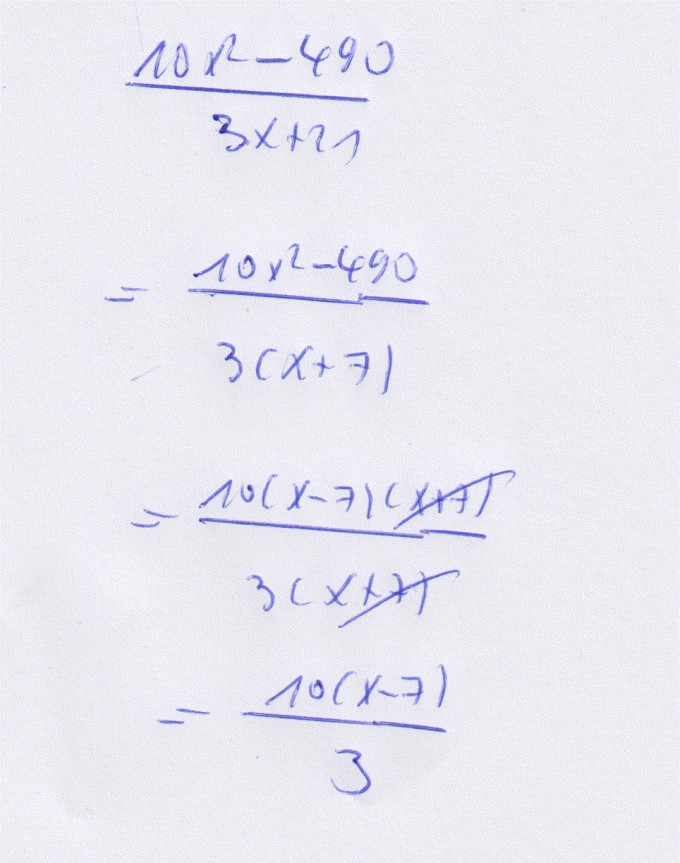 10x² - 490
3x + 21
= 10x² - 490
3(x + 7)
= 10(x - 7)(x + 7)
3(x + 7)
= 10(x - 7)
3